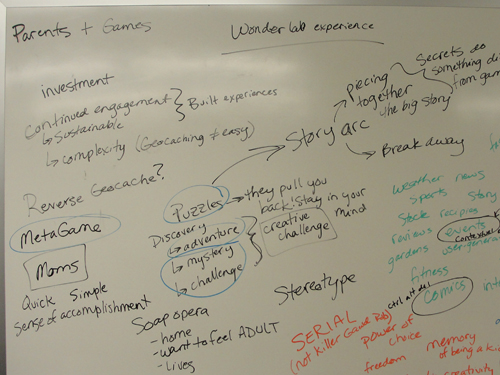 Parents + Games
Wonder lab experience
investment
Continued engagement
↳ Sustainable
↳ complexity (Geocaching ≠ easy)
Built experiences
Reverse Geocache?
MetaGame
Moms
Quick Simple
Sense of accomplishment
Puzzles → they pull you
back/stay in your
mind
Discovery
↳ adventure
↳ mystery
↳ challenge
creative
challenge
Soap opera
- home
- want to feel ADULT
- Lives
Story arc
piecing
together
the big story
Secrets do
something di
from gam
Break away
Stereotype
weather news
sports
stock recipies story
reviews events
gardens user-genera
fitness
Comics
SERIAL
power of
choice
freedom
memory
of being a ki
creativity